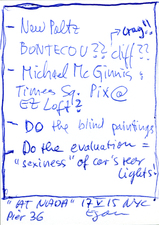 - New Paltz
crag!!
BONTECOU?? cliff??
- Michael Mc Ginnis &
Times Sq. Pix@
EZ Loft?
- DO the blind paintings
- Do the evaluation =
"sexiness" of car's rear
lights!
"AT NADA" 17 V 15 NYC
Pier 36